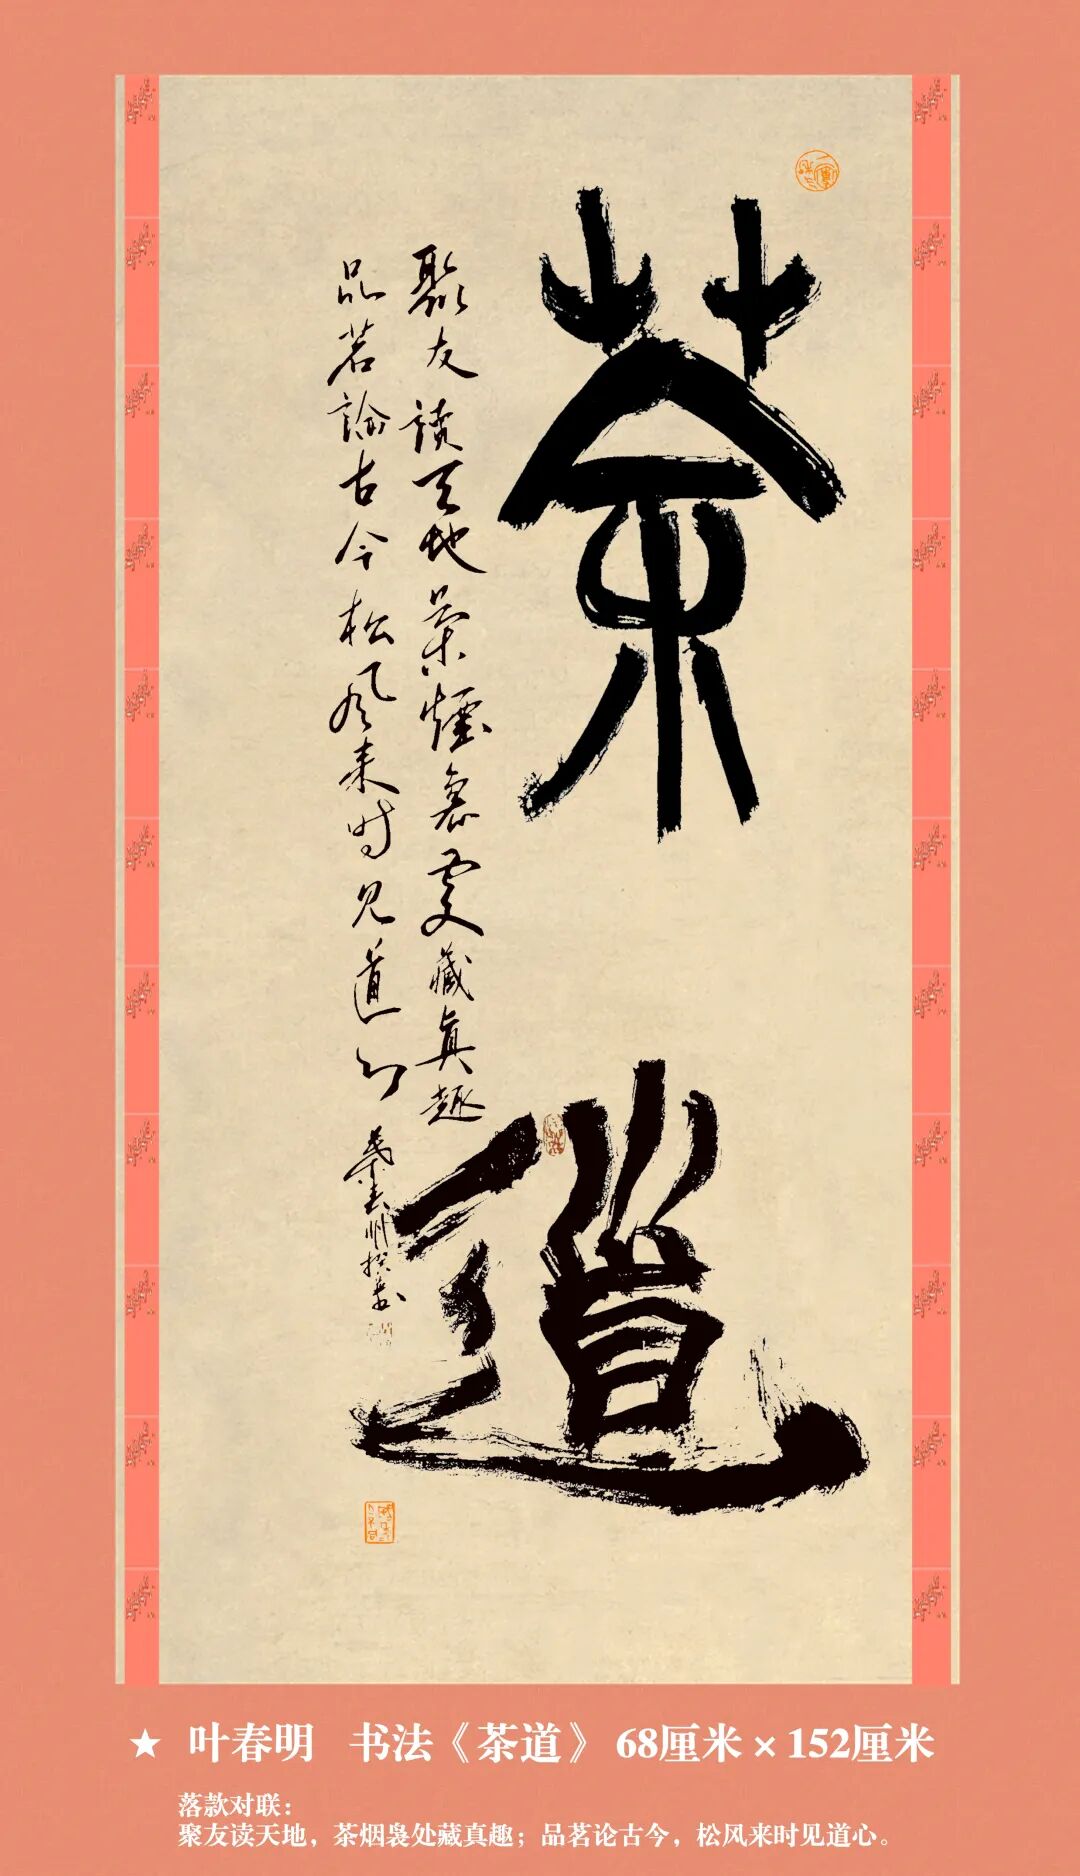 茶道
聚友读天地茶煙袅處藏真趣
品茗論古今松风来时见道心
★ 叶春明 书法《茶道》68厘米×152厘米
落款对联：
聚友读天地，茶烟袅处藏真趣；品茗论古今，松风来时见道心。